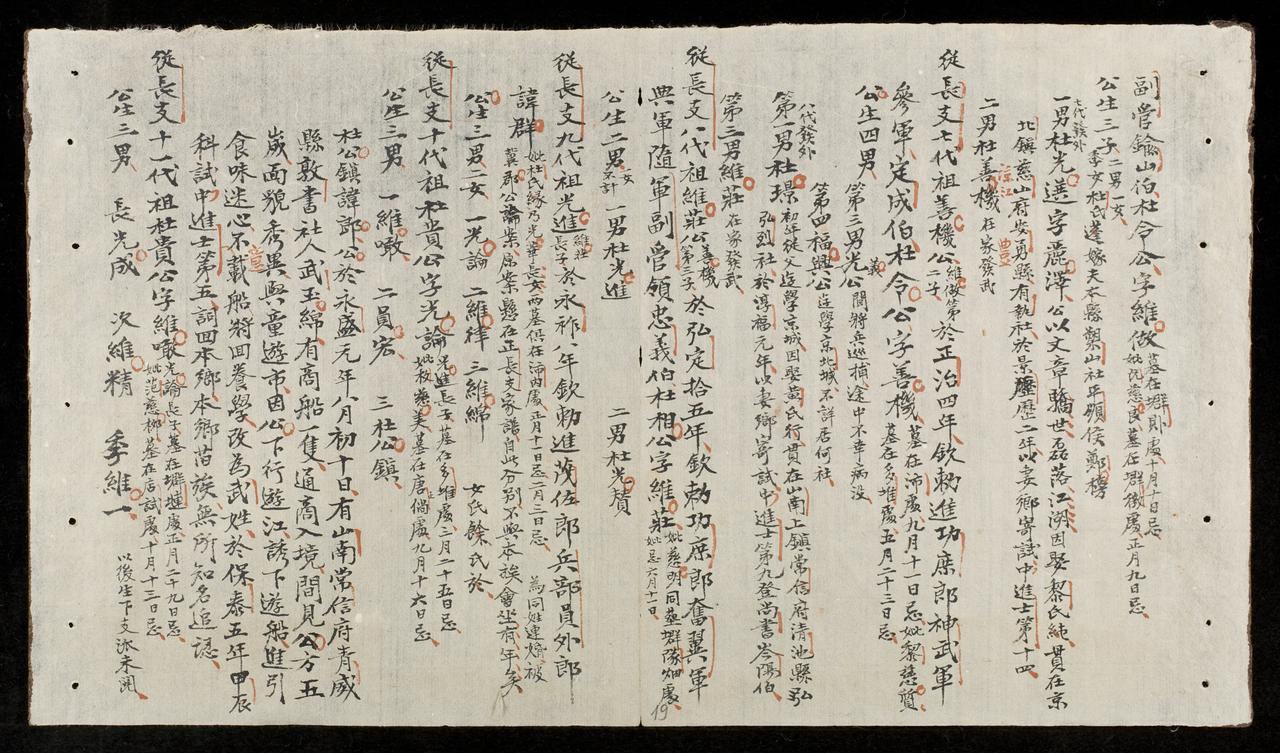 副管鑰山伯杜令公字維做 墓在塀則處十月十日忌 妣阮慈良墓在群後處正月九日忌
公生三子二男一女 季女杜氏蓬嫁夫本縣槊山社平願侯鄭榜
七代發外
一男杜光選字麗澤公以文章驕世磊落江湖因娶黎氏純貫在京
北鎮慈山府安勇縣有執社於景歷二年以妻鄉寄試中進士第十四
二男杜善機 在家發武
從長支七代祖善機公 維做第二子 於正治四年欽勅進功庶郎神武軍
參軍定成伯杜令公字善機 墓在沛處九月十一日忌妣黎慈質 墓在多堆處五月二十三日忌
公生四男 第三男光義公間將兵巡捕途中不幸病沒
第四福興公遊學京北城不詳居何社
八代發外
第一男杜璟 初年從父遊學京城因娶黃氏行貫在山南上鎮常信府清池縣弘 弘烈社於淳福元年以妻鄉寄試中進士第九登尚書岑陽伯
第三男維莊 在家發武
從長支八代祖維莊公 善機第三子 於弘定拾五年欽勅功庶郎奮翼軍
典軍隨軍副管領忠義伯杜相公字維莊 妣慈明同墓群隊畑處 妣忌六月十一日
19
公生二男 女不計 一男杜光進 二男杜光賛
從長支九代祖光進 維莊長子 於永祚八年欽勅進茂佐郎兵部員外郎
諱群 妣杜氏緣乃光華長女兩墓俱在沛內處正月十一日忌二月三日忌 為同姓連婚被 冀郡公論案原案懸在正長支家譜自此分別不與本族會坐有年矣
公生三男二女 一光論 二維律 三維綿 女氏餘氏於
從長支十代祖杜貴公字光論 光進長子墓在多堆處三月二十五日忌 妣枚慈美墓在唐倘處九月十六日忌
公生三男 一維噉 二員宏 三杜公鎮
杜公鎮諱郎公於永盛元年八月初十日有山南常信府青威
縣敦書社人武玉綿有商船一隻通商入境間見公方五
歲面貌秀異與童遊市因公下行遊江誘下遊船進引
食味迷心不載船將回養學改為武姓於保泰五年甲辰
科試中進士第五詞回本鄉本鄉苗族無所知名追認
從長支十一代祖杜貴公字維噉 光論長子墓在塀堆處正月二十九日忌 妣范慈柳墓在店試處十月十三日忌
公生三男 長光成 次維精 季維一 以後生下支派未開